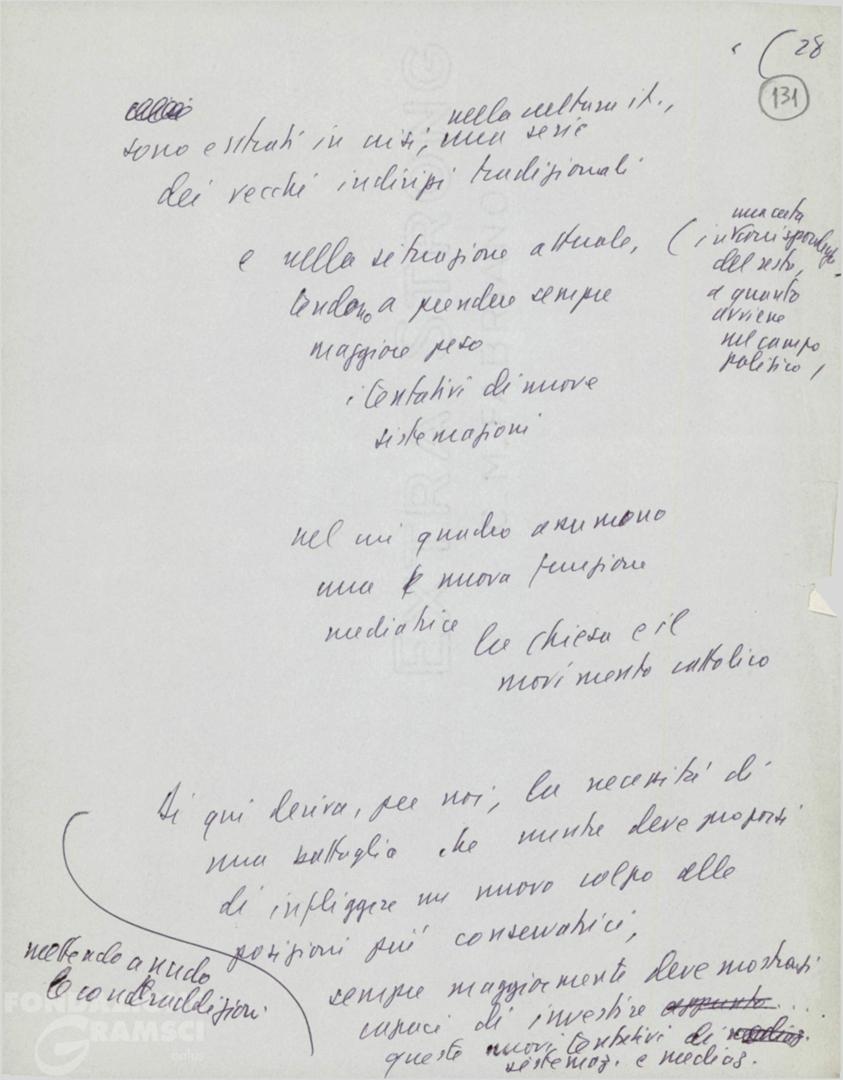 28
131
nella cultura it.,
sono entrati in crisi, una serie
dei vecchi indirizzi tradizionali
e nella situazione attuale,
(una certa
in corrispondenza
del resto,
a quanto
avviene
nel campo
politico,
tendono a prendere sempre
maggiore peso
i tentativi di nuove
sistemazioni
nel cui quadro assumono
una nuova funzione
mediatrice
la chiesa e il
movimento cattolico
Di qui deriva, per noi, la necessità di
una battaglia che mentre deve proporsi
di infliggere un nuovo colpo alle
posizioni più conservatrici,
mettendo a nudo
le contraddizioni
sempre maggiormente deve mostrarsi
capaci di investire appunto
questi nuovi tentativi di
sistemaz. e mediaz.
EXTRA STRONG
FONDAZIONE
GRAMSCI
onlus